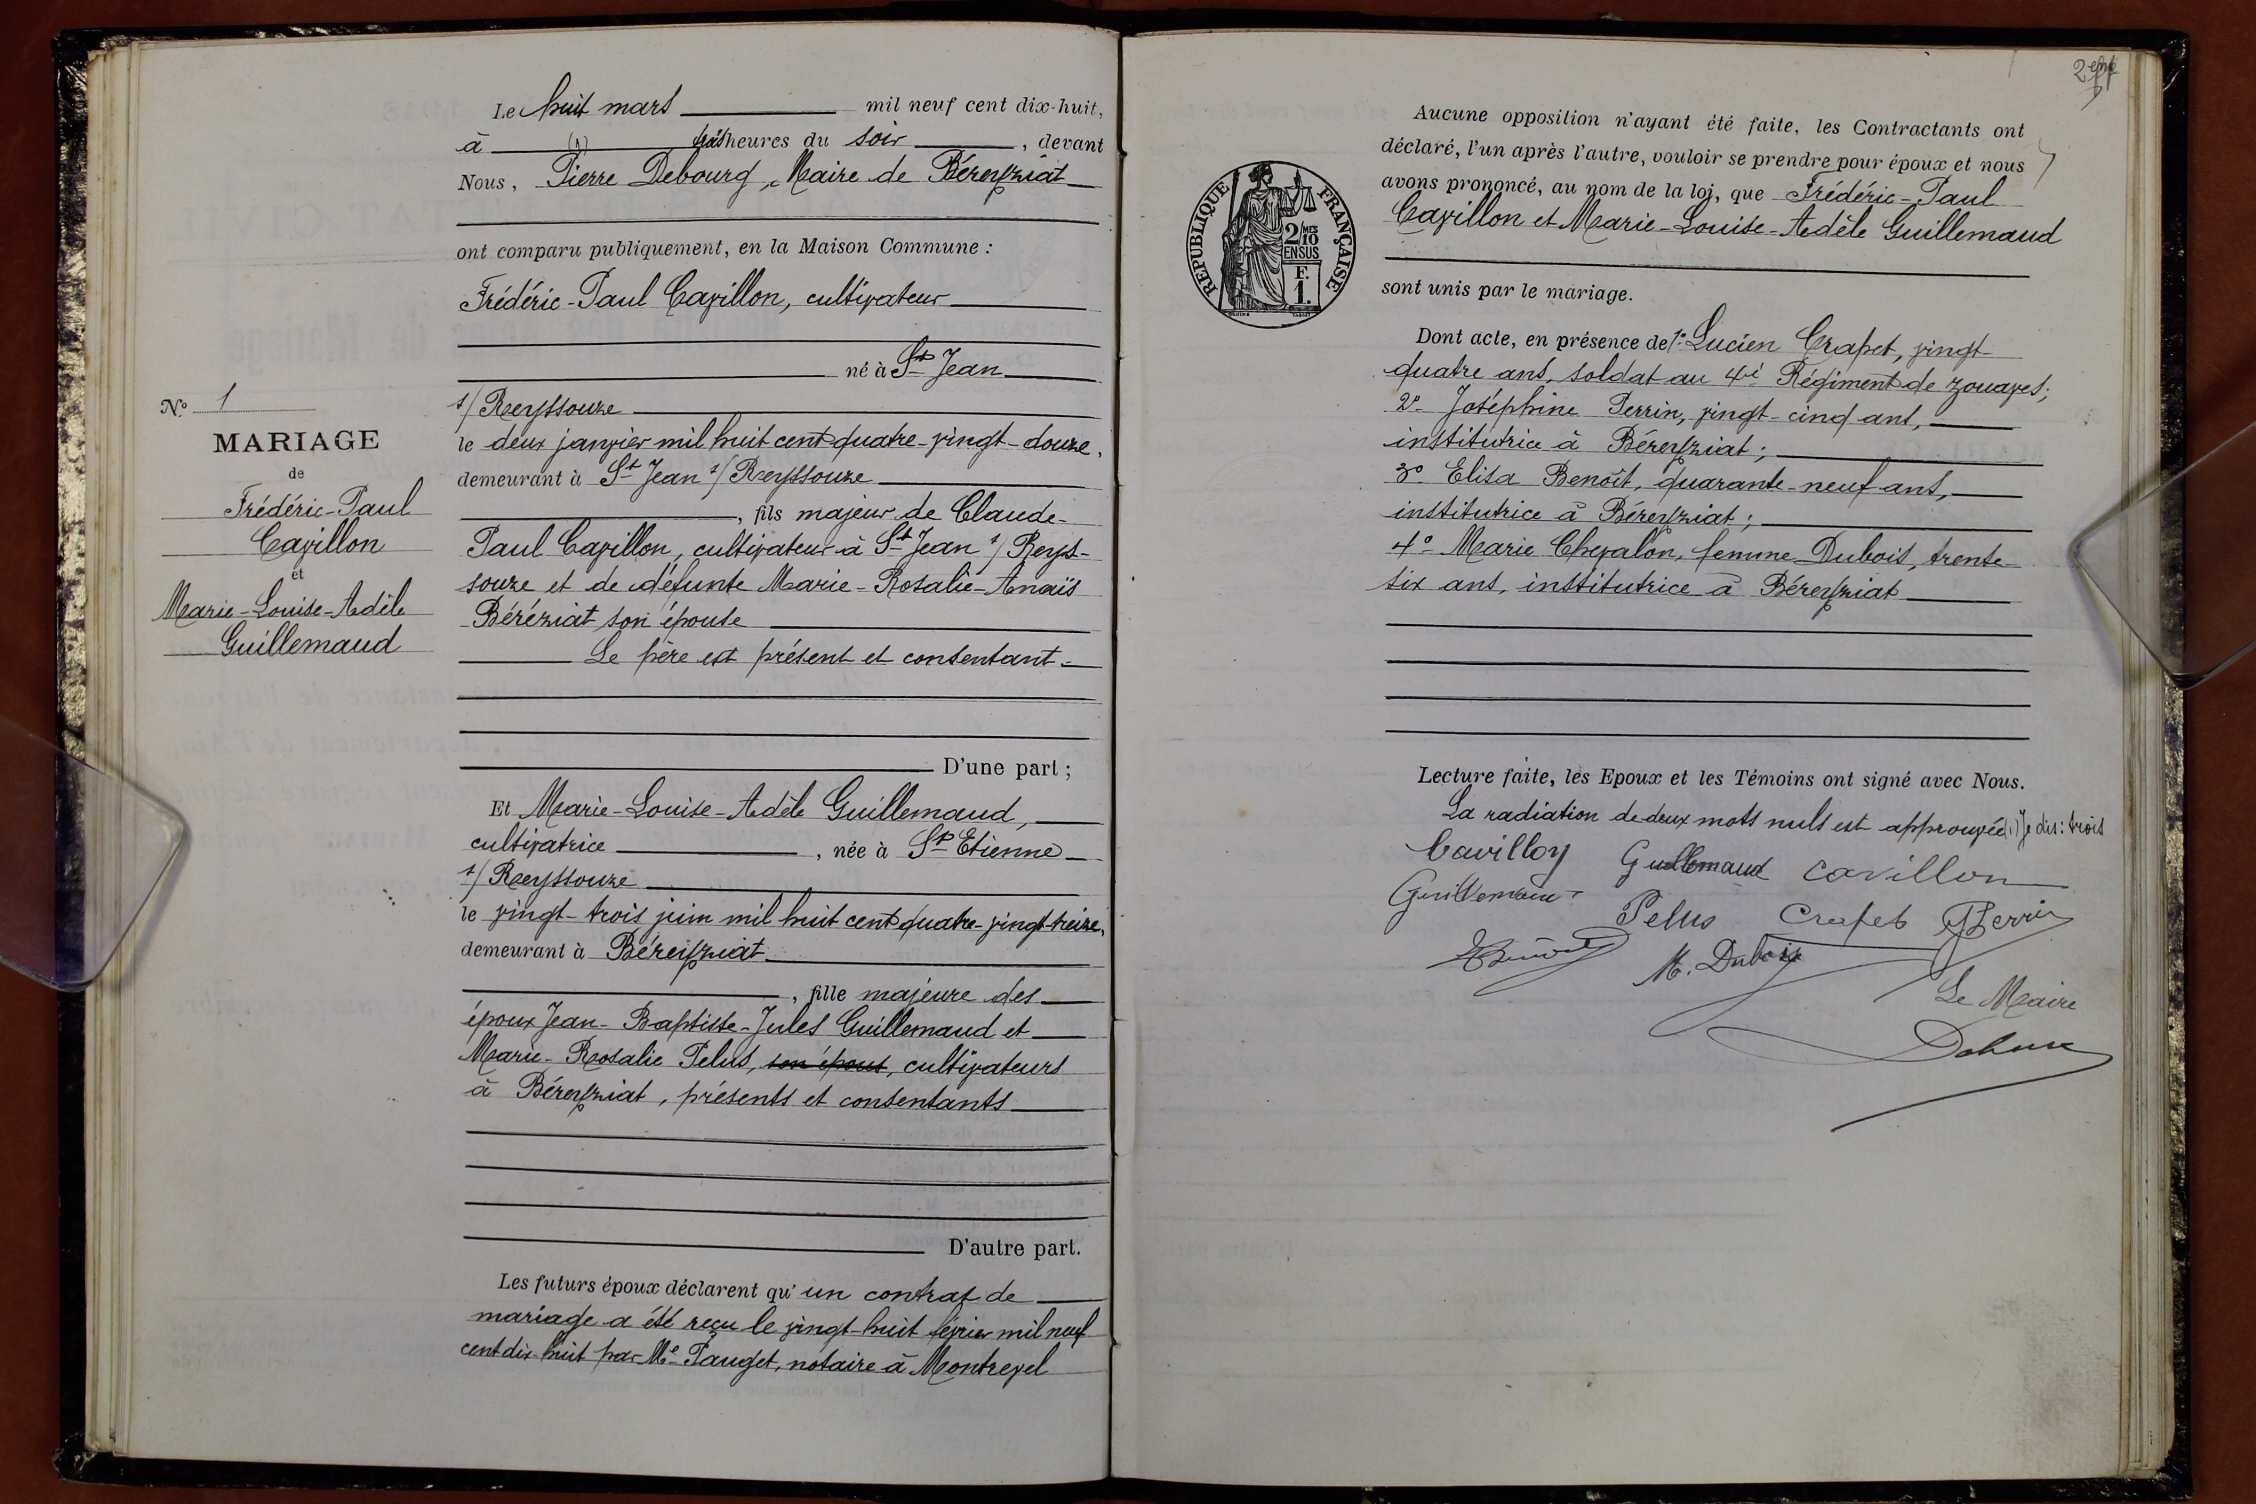 Le huit mars mil neuf cent dix-huit,
à (1) trois heures du soir, devant
Nous, Pierre Debourg, Maire de Béreyziat
ont comparu publiquement, en la Maison Commune :
Frédéric-Paul Cavillon, cultivateur
né à St Jean
s/ Reyssouze
le deux janvier mil huit cent quatre-vingt-douze,
demeurant à St Jean s/ Reyssouze
, fils majeur de Claude-
Paul Cavillon, cultivateur à St Jean s/ Reys-
souze et de défunte Marie-Rosalie-Anaïs
Béréziat son épouse
Le père est présent et consentant
D'une part ;
Nº 1
MARIAGE
de
Frédéric-Paul
Cavillon
et
Marie-Louise-Adèle
Guillemaud
Et Marie-Louise-Adèle Guillemaud,
cultivatrice, née à St Etienne
s/ Reyssouze
le vingt-trois juin mil huit cent quatre-vingt-treize,
demeurant à Béreyziat
, fille majeure des
époux Jean-Baptiste-Jules Guillemaud et
Marie-Rosalie Pelus, son épous, cultivateurs
à Béreyziat, présents et consentants
D'autre part.
Les futurs époux déclarent qu'un contrat de
mariage a été reçu le vingt-huit février mil neuf
cent dix-huit par Me Pauget, notaire à Montrevel
2eme
Aucune opposition n'ayant été faite, les Contractants ont
déclaré, l'un après l'autre, vouloir se prendre pour époux et nous
avons prononcé, au nom de la loi, que Frédéric-Paul
Cavillon et Marie-Louise-Adèle Guillemaud
REPUBLIQUE FRANÇAISE
2/10 MES
EN SUS
F.
1.
sont unis par le mariage.
Dont acte, en présence de 1º Lucien Crapet, vingt-
quatre ans, soldat au 4e Régiment de zouaves;
2º Joséphine Perrin, vingt-cinq ans,
institutrice à Béreyziat;
3º Elisa Benoît, quarante-neuf ans,
institutrice à Béreyziat;
4º Marie Chevalon, femme Dubois, trente-
six ans, institutrice à Béreyziat
Lecture faite, les Epoux et les Témoins ont signé avec Nous.
La radiation de deux mots nuls est approuvée (1) Je dis: trois
Cavilloy Guillemaud Cavillon
Guillemaud
Pelus Crapet J Perrin
E Benoît M. Dubois
Le Maire